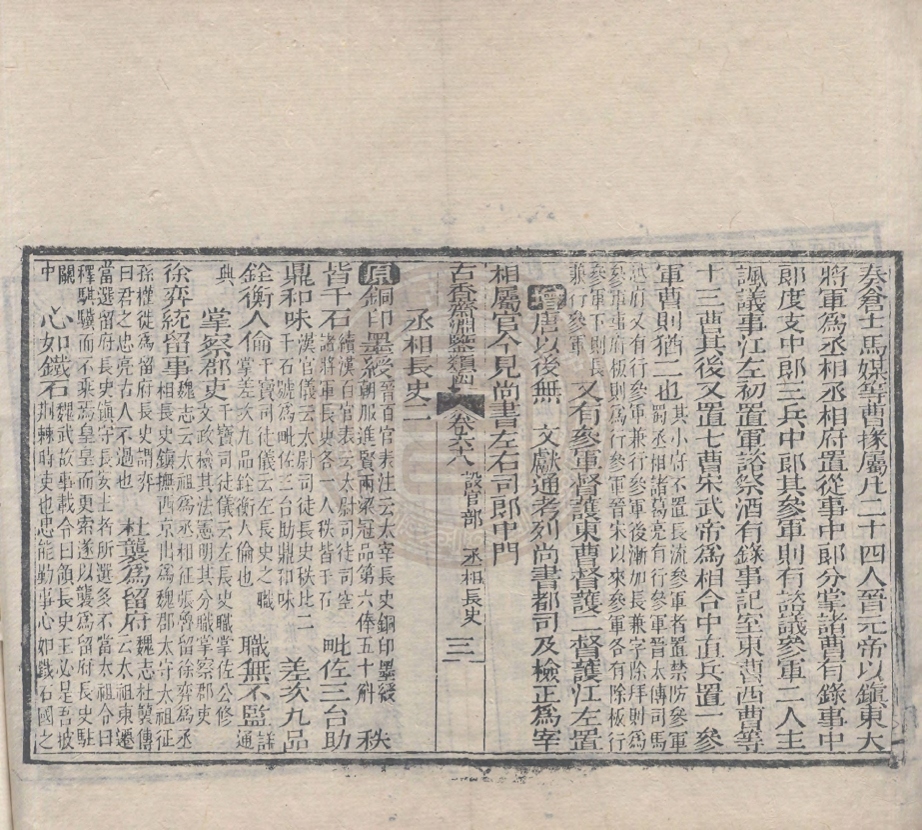 奏倉士馬媒等曹掾屬凡二十四人晉元帝以鎮東大
將軍為丞相丞相府置從事中郎分掌諸曹有錄事中
郎度支中郎三兵中郎其參軍則有諮議參軍二人主
諷議事江左初置軍諮祭酒有錄事記室東曹西曹等
十三曹其後又置七曹宋武帝為相合中直兵置一參
軍曹則猶二也其小府不置長流參軍者置禁防參軍
蜀丞相諸葛亮有行參軍晉太傅司馬
越府又有行參軍兼行參軍後漸加長兼字除拜則為
參軍事府板則為行參軍晉宋以來參軍各有除板行
參軍下則長
兼行參軍又有參軍督護東曹督護二督護江左置
增唐以後無 文獻通考列尚書都司及檢正為宰
相屬官今見尚書左右司郎中門
古香齋淵鑑類函 卷六十八 設官部 丞相長史 三
丞相長史二
原銅印墨綬晉百官表注云太宰長史銅印墨綬
朝服進賢兩梁冠品第六俸五十斛 秩
皆千石續漢百官表云太尉司徒司空
諸將軍長史各一人秩皆千石 毗佐三台助
鼎和味漢官儀云太尉司徒長史秩比二
千石號為毗佐三台助鼎和味 差次九品
銓衡人倫干寶司徒儀云左長史之職
掌差次九品銓衡人倫也 職無不監詳
通
典 掌察郡吏干寶司徒儀云左長史職掌佐公修
文政檢其法憲明其分職掌察郡吏
徐奕統留事魏志云太祖為丞相征張魯留徐奕為丞
相長史鎮撫西京出為魏郡太守太祖征
孫權徙為留府長史謂奕
曰君之忠亮古人不過也 杜襲為留府魏志杜襲傳
云太祖東還
當選留府長史鎮守長安主者所選多不當太祖令曰
釋騏驥而不乘焉皇皇而更索遂以襲為留府長史駐
關
中 心如鐵石魏武故事載令曰領長史王必是吾披
荆棘時吏也忠能勤事心如鐵石國之